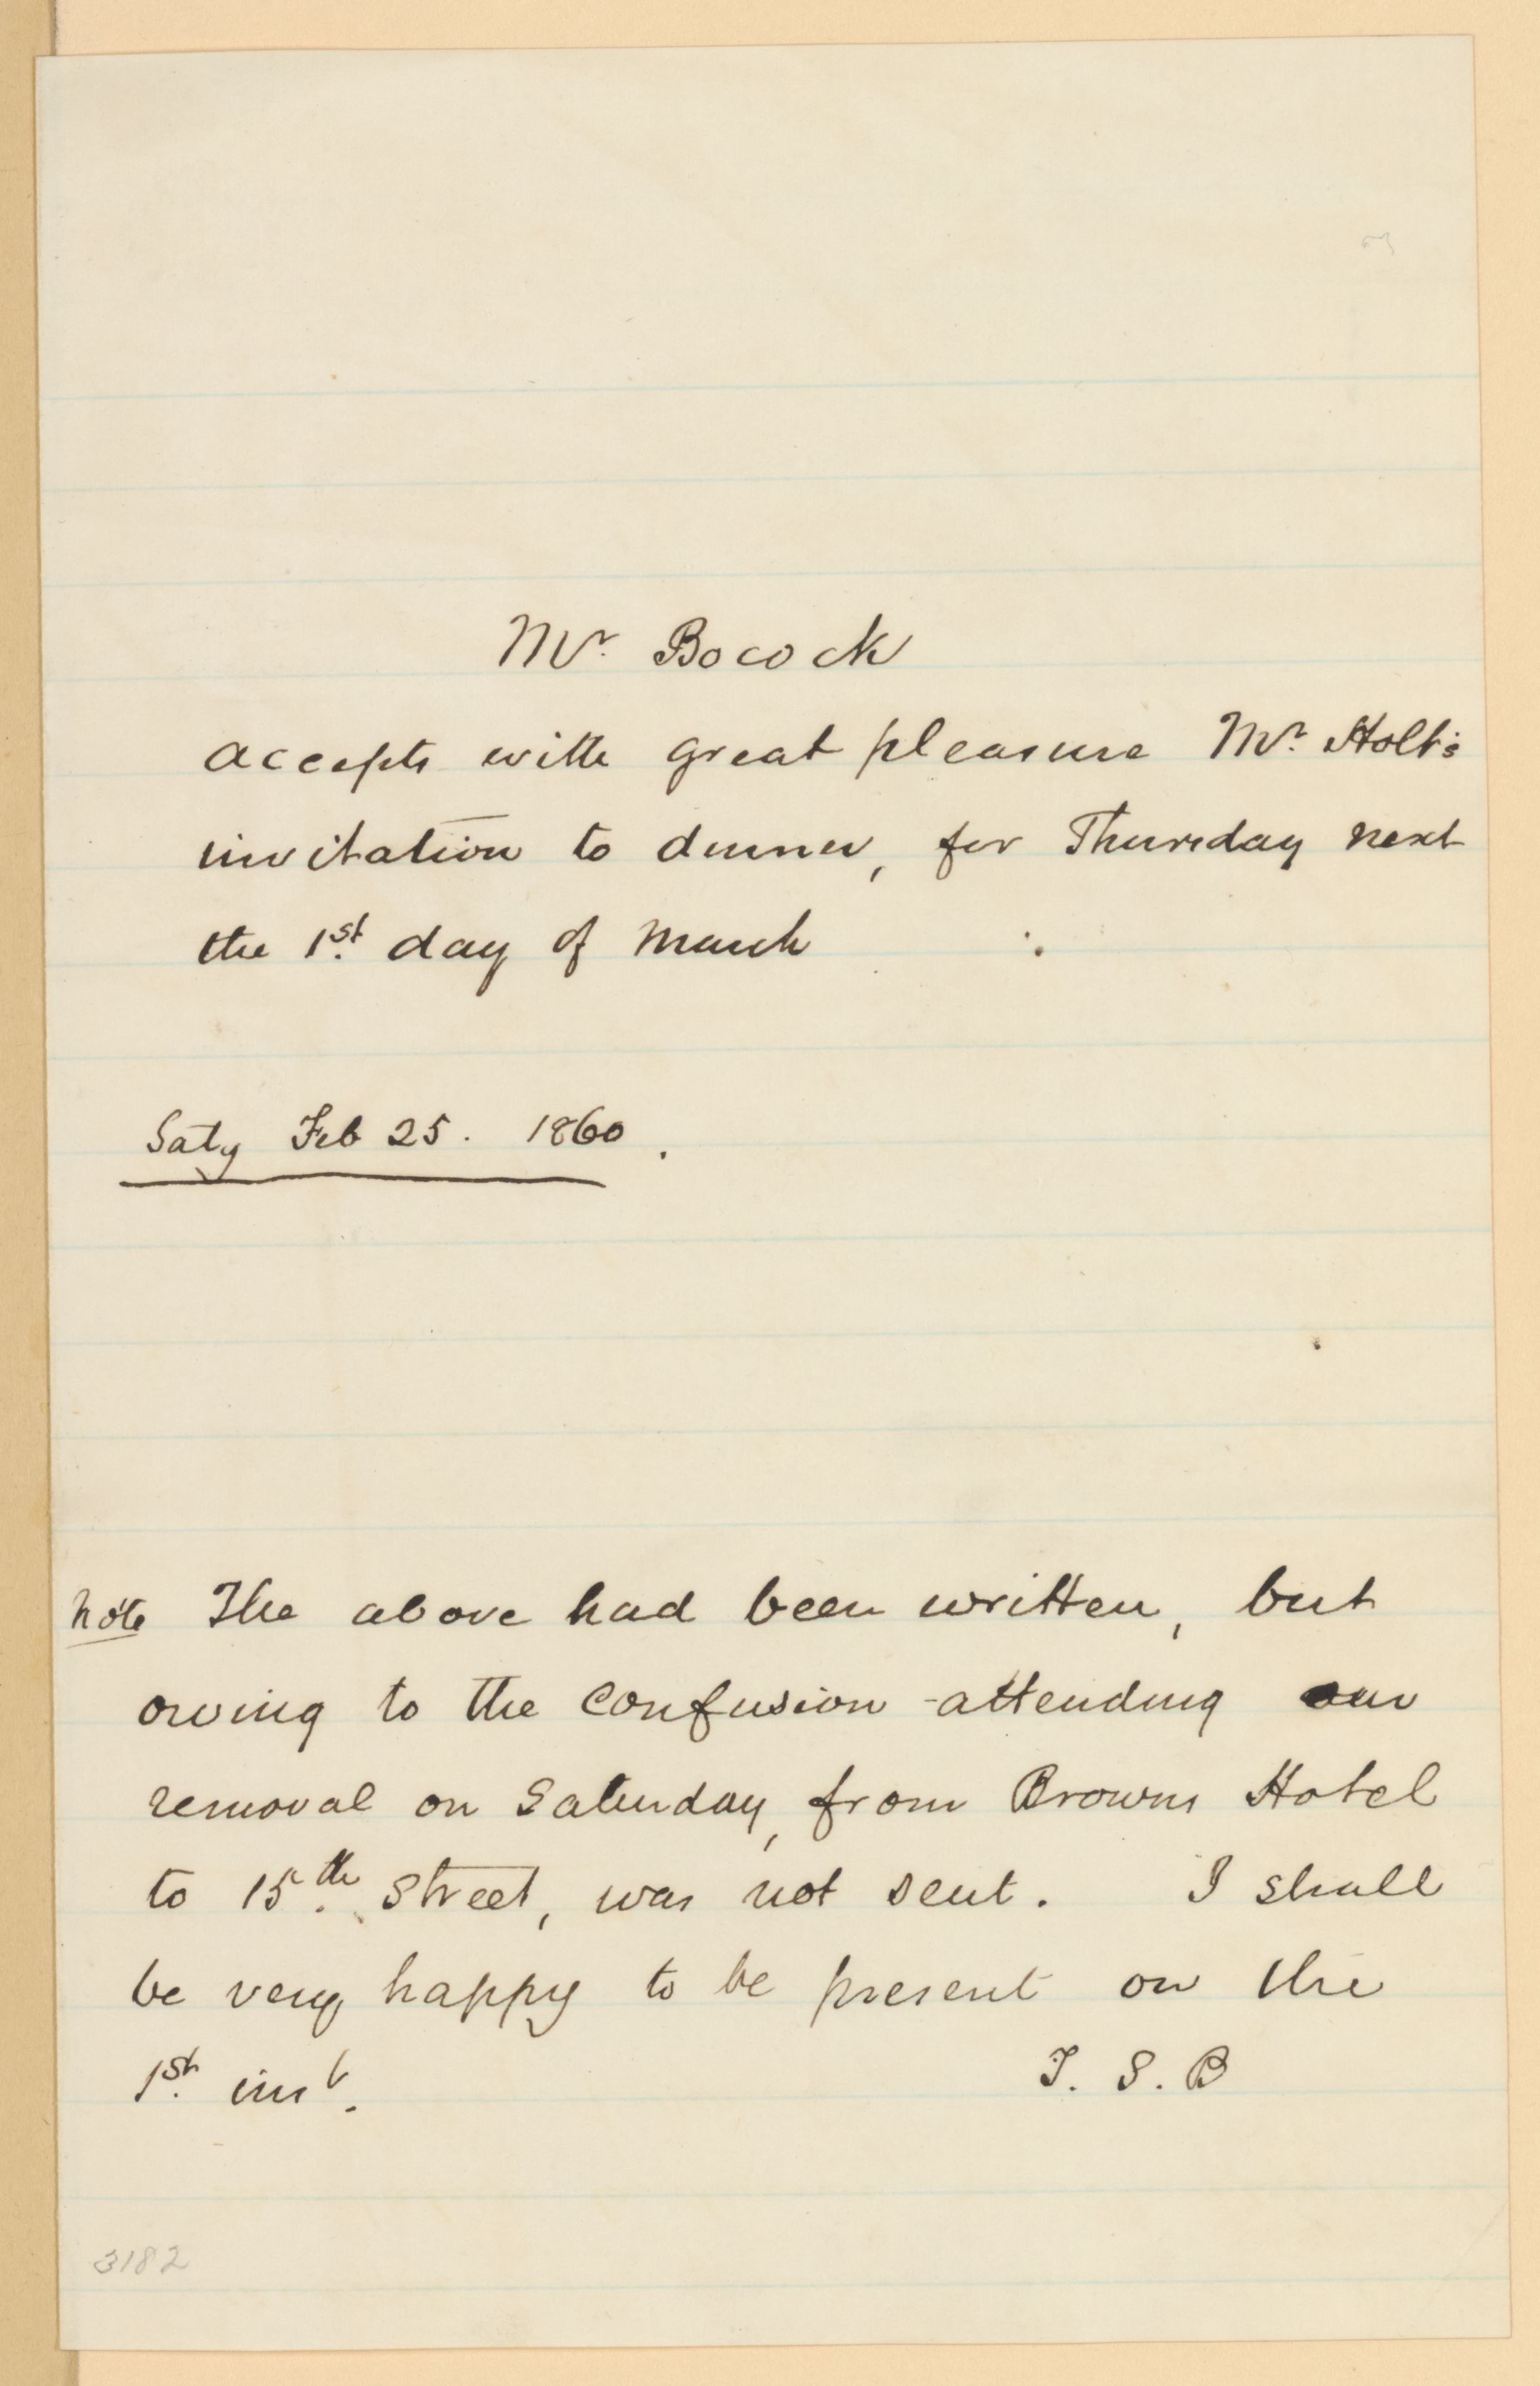 Mr. Bocock
accepts with great pleasure Mr. Holt's
invitation to dinner, for Thursday next
the 1st. day of March
Saty Feb 25. 1860.
Note The above had been written, but
owing to the confusion attending our
removal on Saturday, from Browns Hotel
to 15th. Street, was not sent. I shall
be very happy to be present on the
1st. inst.
T. S. B
3182